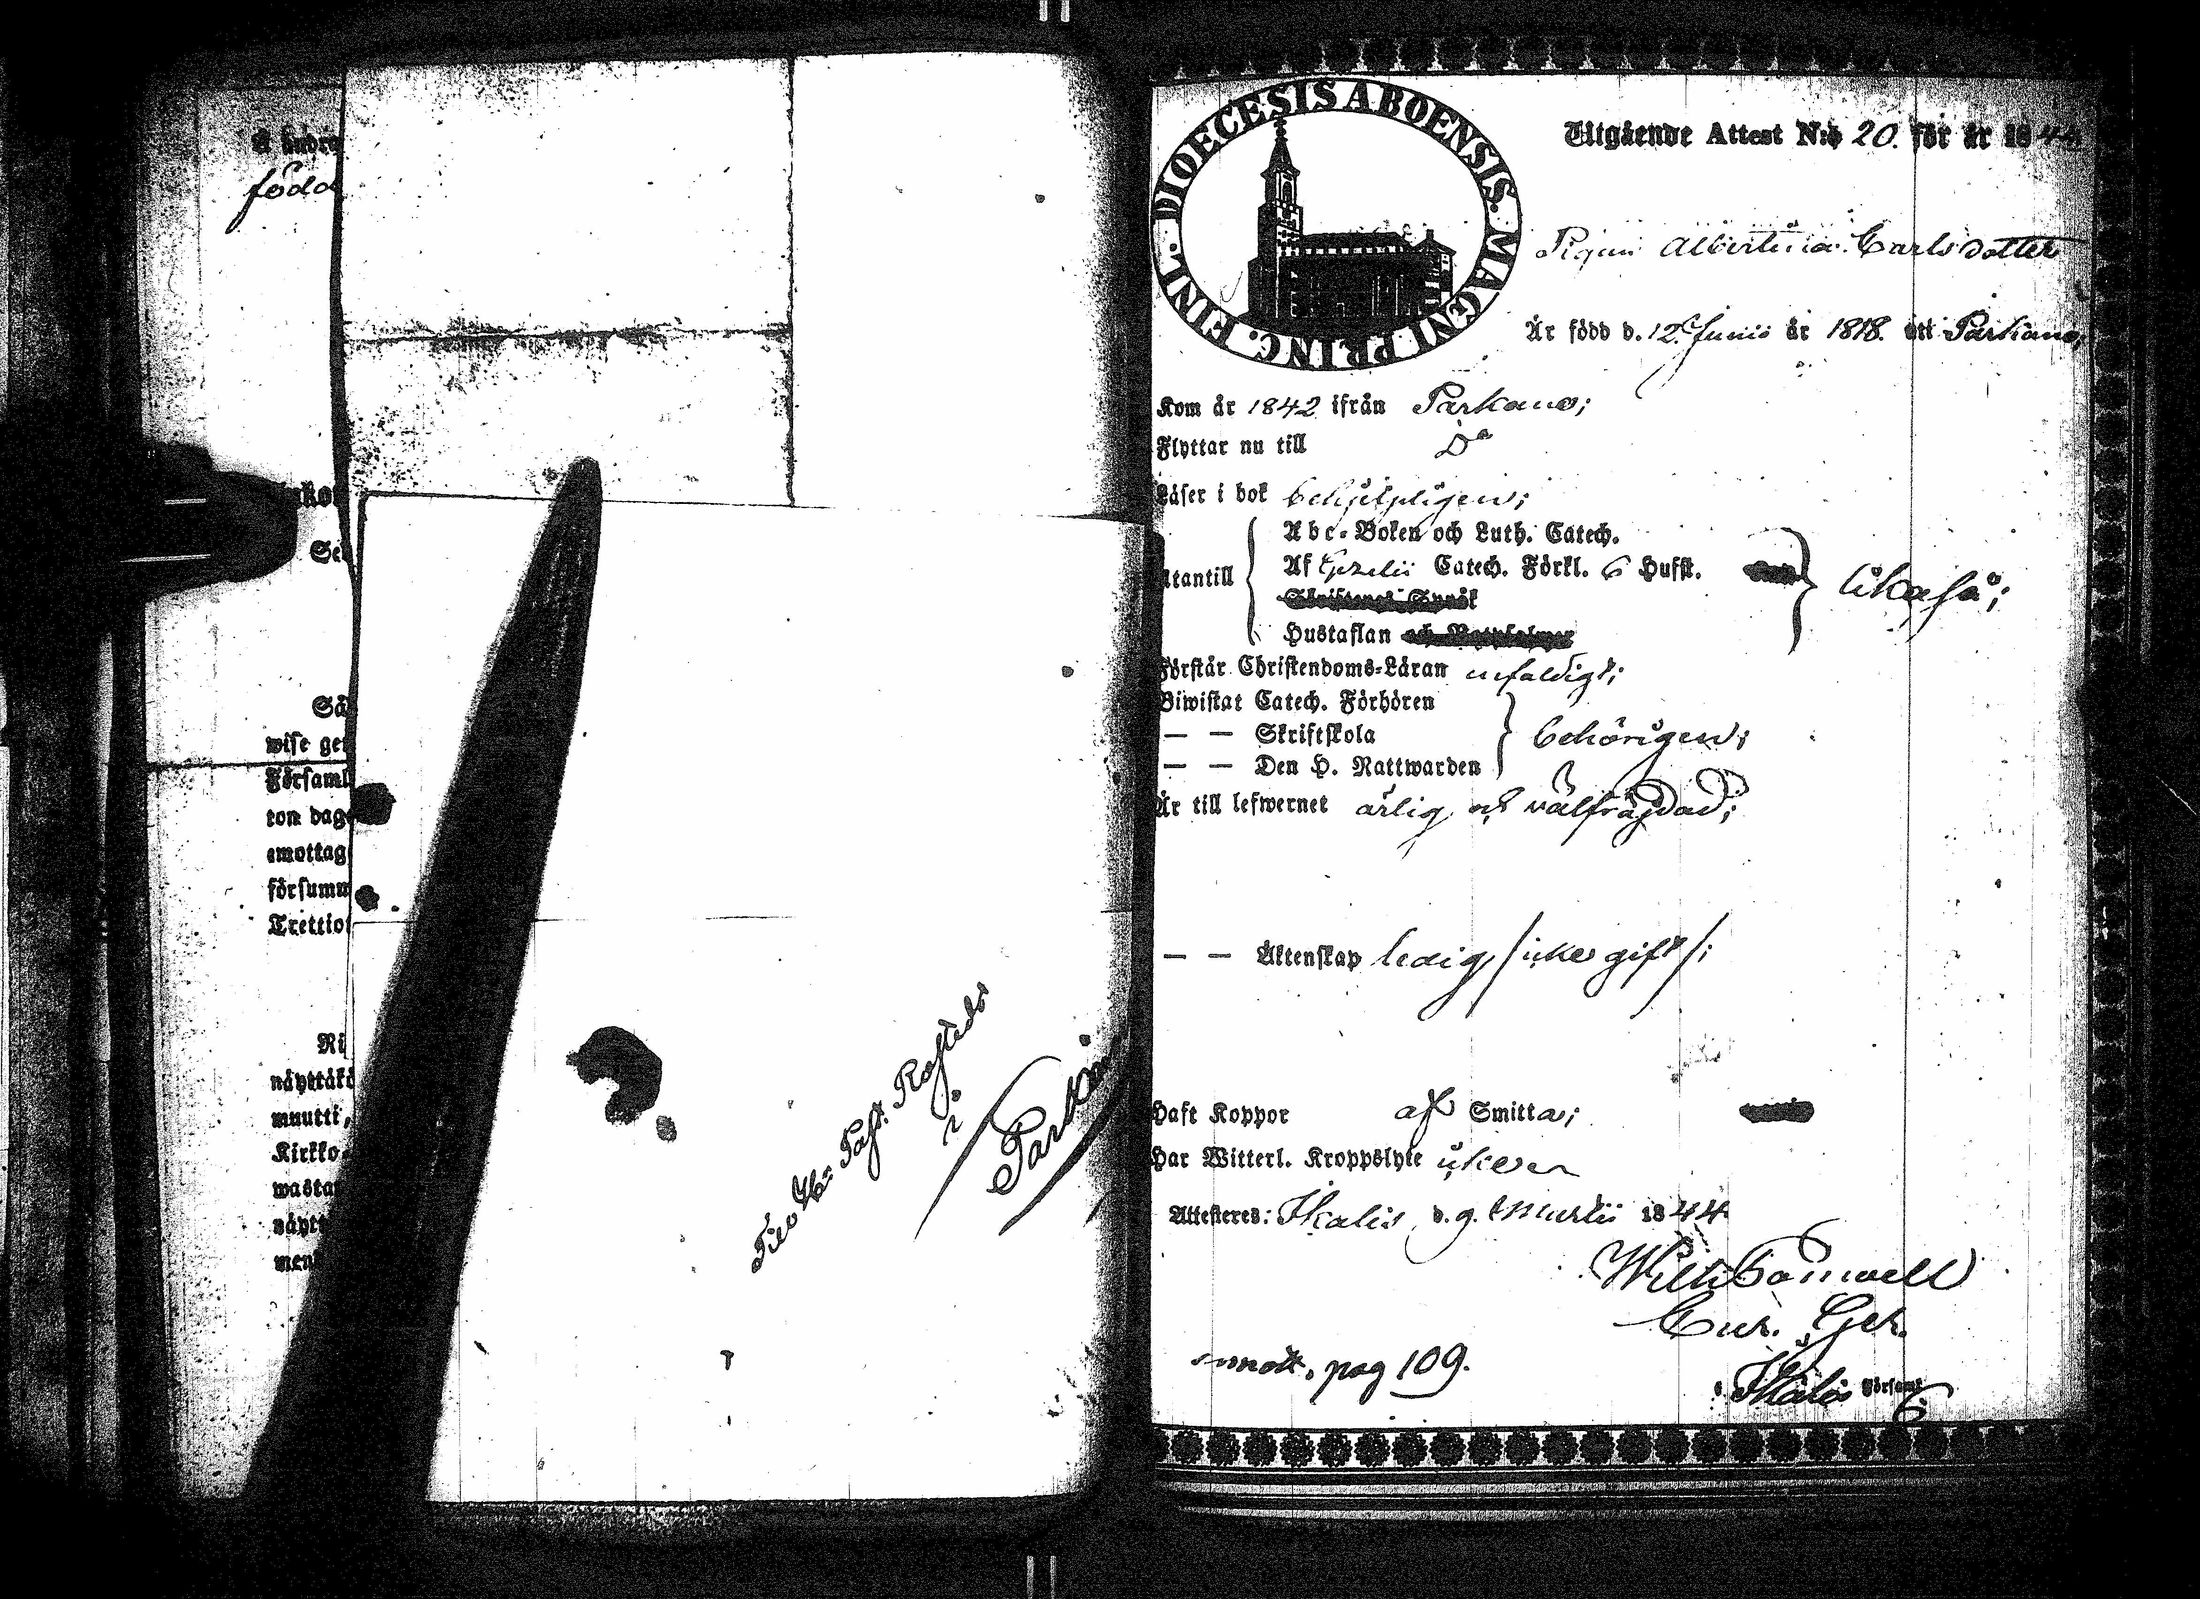 A andra
född
Sä
wise gen
Församl
ton dag
emottag
försumm
Trettio
Ni
näyttäkö
muutti,
Kirkko
wasta
näytt
men
Till Hr Past. Rosteds
i
Parkano
DIOECESIS ABOENSIS. MAGNI PRINC. FINL.
Utgående Attest N:o 20. för år 1844.
Pigan Albertina Carlsdotter
Är född d. 12 Junii år 1818. uti Parkano,
Kom år 1842 ifrån Parkano;
Flyttar nu till Do
Läser i bok behjelpligen;
Utantill
Abc-Boken och Luth. Catech.
Af Gezelii Catech. Förkl. 6 Hufst.
Skriftenes Språk
Hustaflan och Bottpsalmer
likaså;
Förstår Christendoms-Läran enfaldigt;
Biwistat Catech. Förhören
— — Skriftskola
— — Den H. Nattwarden
behörigen;
Är till lefwernet ärlig och välfräjdad;
— — Äktenskap ledig /icke gift/;
Haft Koppor af Smitta;
Har Witterl. Kroppslyte icke
Attesteres: Ikalis d. 9. Martii 1844
Cur. Ger.
i Ikalis Församl.
emott. pag 109.